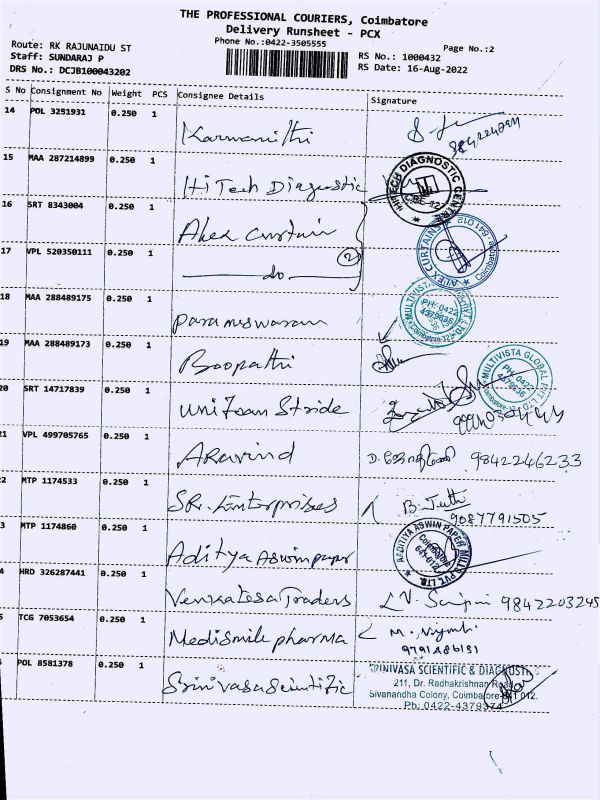 THE PROFESSIONAL COURIERS, Coimbatore
Delivery Runsheet - PCX
Phone No.:0422-3505555
Page No.:2
Route: RK RAJUNAIDU ST
Staff: SUNDARAJ P
DRS No.: DCJB100043202
RS No.: 1000432
RS Date: 16-Aug-2022
S No Consignment No Weight PCS Consignee Details Signature
14 POL 3251931 0.250 1 Karmanithi
15 MAA 287214899 0.250 1 HiTech Diagnostic
HITECH DIAGNOSTIC CENTRE
16 SRT 8343004 0.250 1 Alex Curtain
ALEX CURTAINS Coimbatore - 641 012
17 VPL 520350111 0.250 1 do 2
18 MAA 288489175 0.250 1 Parameswaram
MULTIVISTA
PH: 0422
4379636
19 MAA 288489173 0.250 1 Boopathi
MULTIVISTA GLOBAL PVT LTD
PH: 0422
4379636
20 SRT 14717839 0.250 1 Unifoam Stride
21 VPL 499705765 0.250 1 Aravind 9842246233
2 MTP 1174533 0.250 1 SR. Enterprises 9087791505
3 MTP 1174860 0.250 1 Aditya Aswin paper
AADITIYA ASWIN PAPER MILLS PVT. LTD.
4 HRD 326287441 0.250 1 Venkatesa Traders 9842203245
5 TCG 7053654 0.250 1 Medismile pharma
POL 8581378 0.250 1 Srinivasa Scientific
SRINIVASA SCIENTIFIC & DIAGNOSTIC
211, Dr. Radhakrishnan Road
Sivanandha Colony, Coimbatore-641 012.
Ph: 0422-4379374